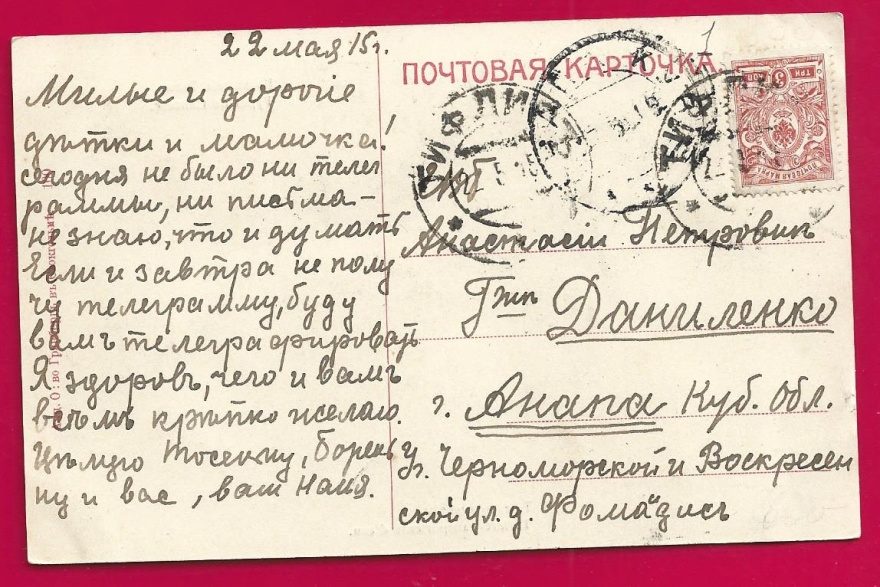 22 мая 15 г.
Милые и дорогіе
дѣтки и мамочка!
сегодня не было ни телег
раммы, ни письма-
не знаю, что и думать
Если и завтра не полу
чу телеграмму, буду
вамъ телеграфировать
Я здоровъ, чего и вамъ
всѣмъ крѣпко желаю.
Цѣлую Тосеньку, Бореньку
ну и вас, ваш
ПОЧТОВАЯ КАРТОЧКА
1
ТРИ КОП
ПОЧТОВАЯ МАРКА
ТИФЛИС
ТИФ
Анастасіи Петровнѣ
Гжѣ Даниленко
г. Анапа Куб. обл.
уг. Черноморской и Воскресен
ской ул. д.